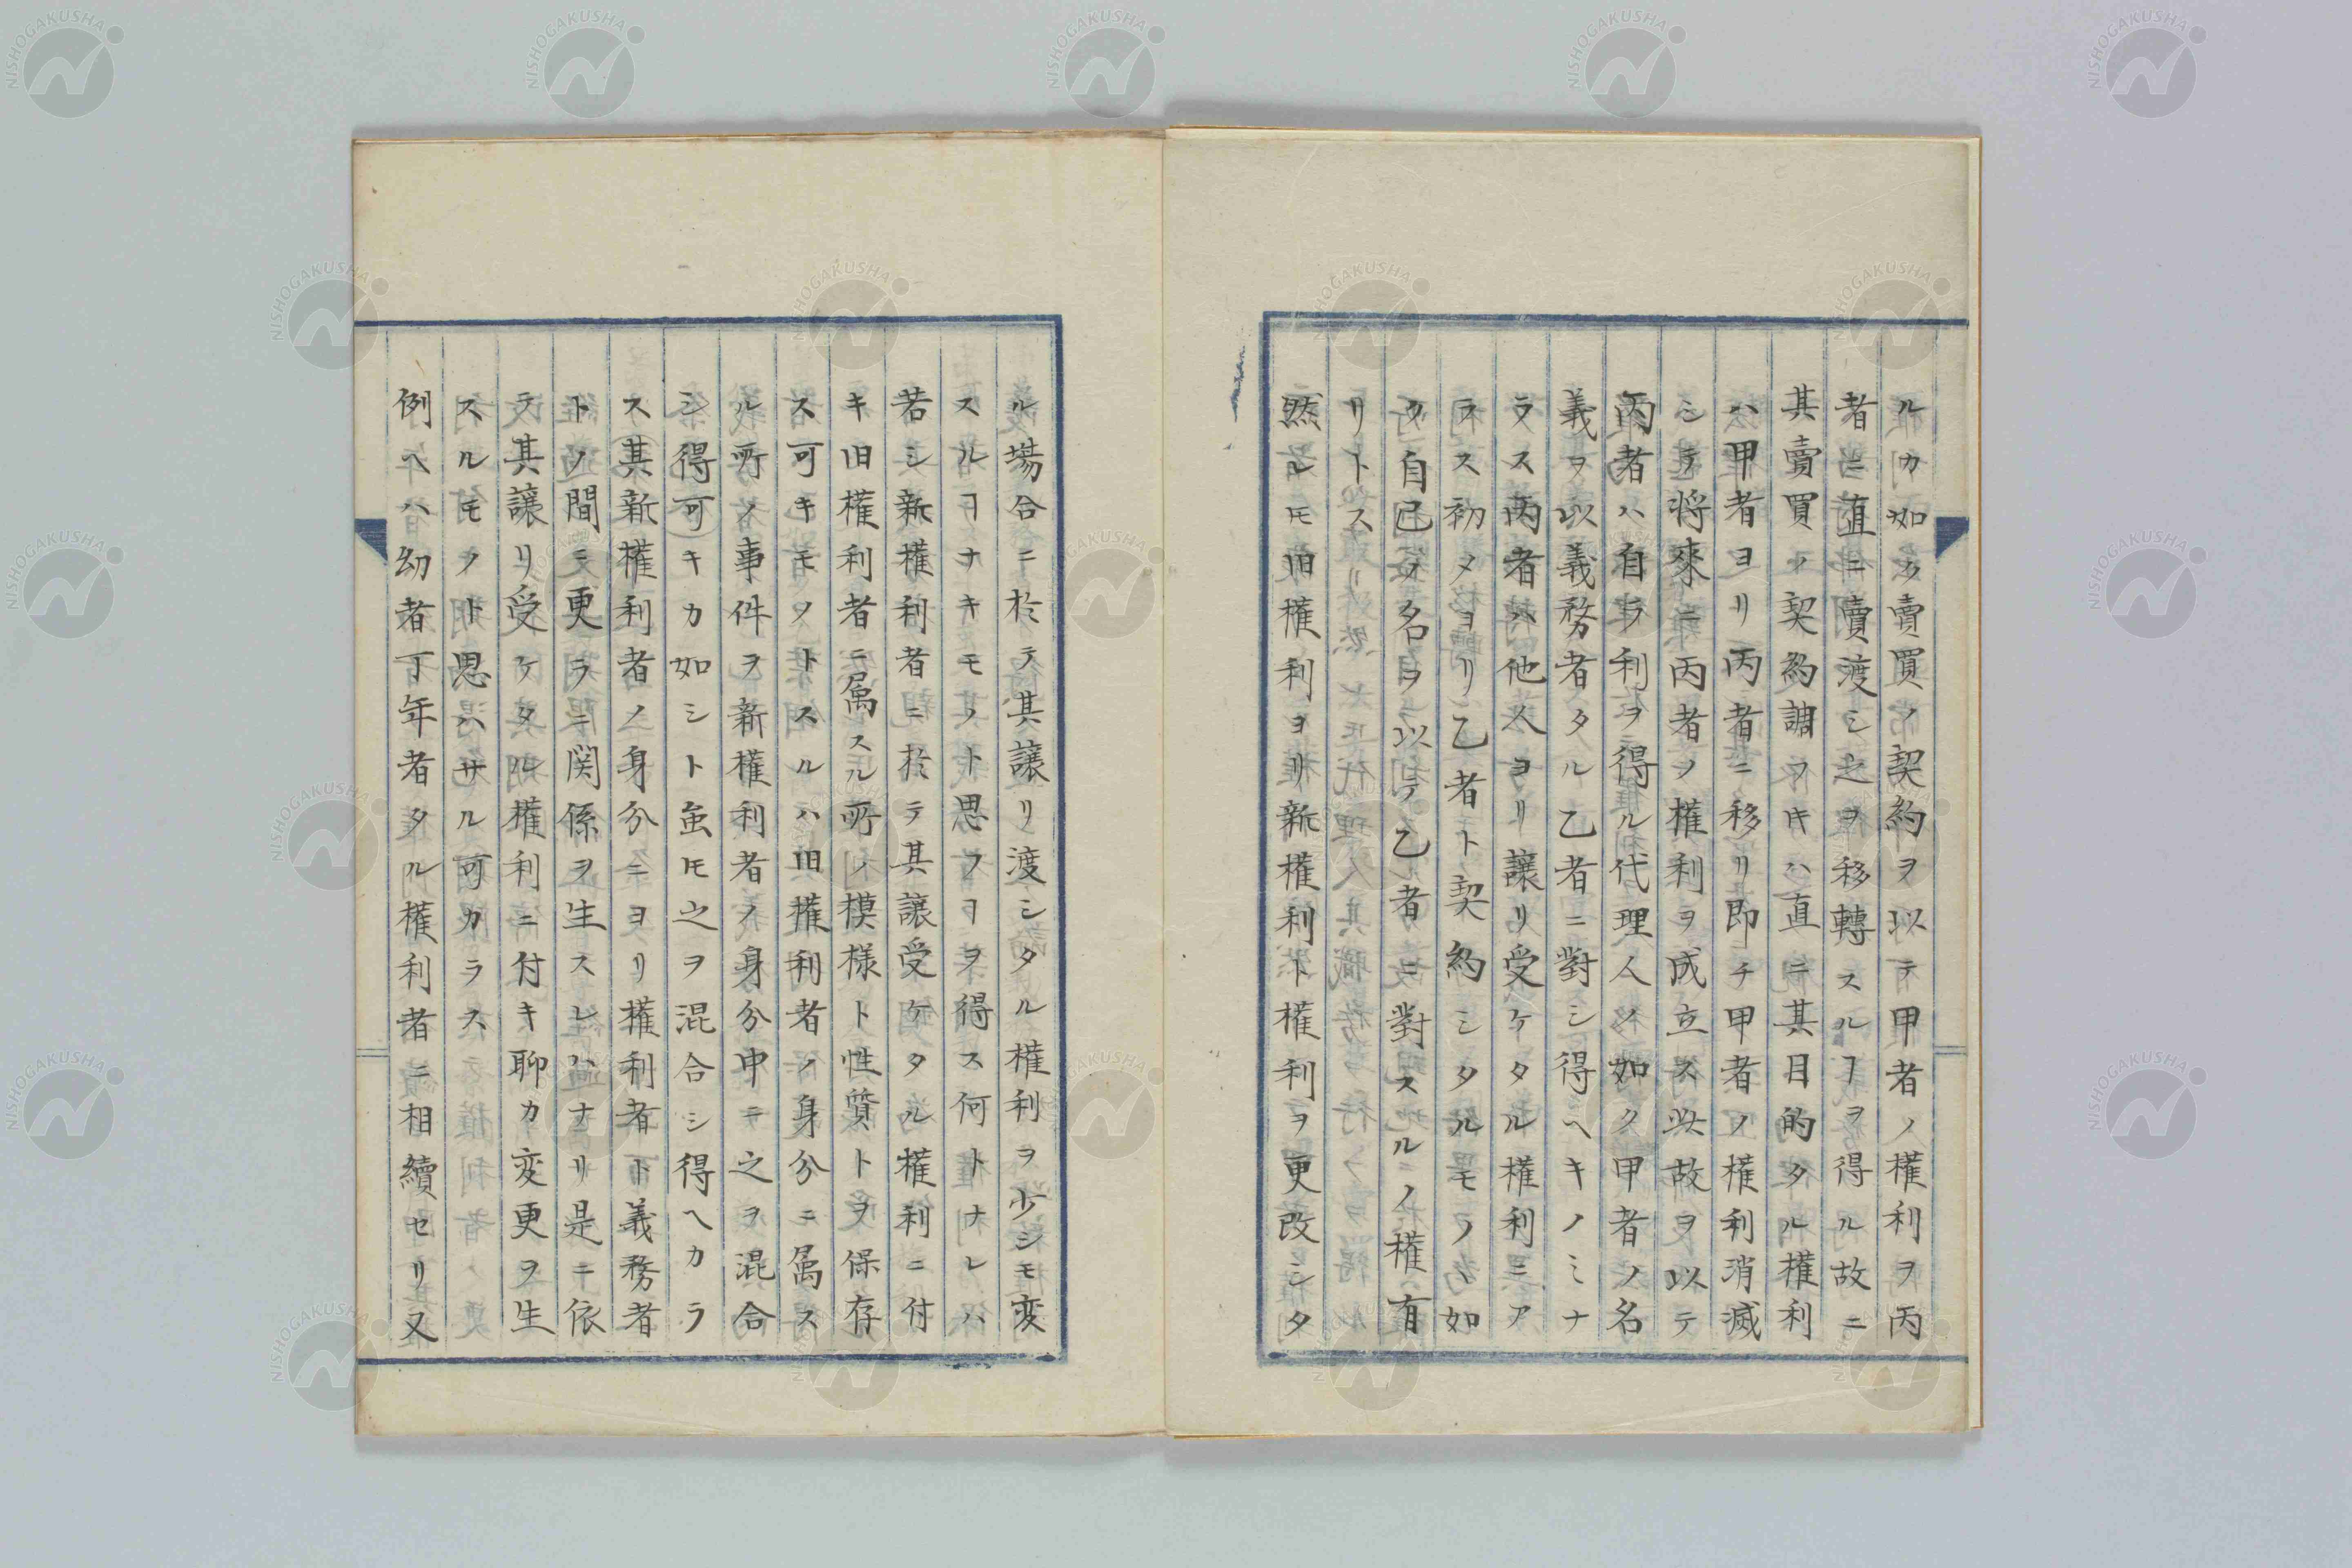 ルカ如ク賣買ノ契約ヲ以テ甲者ノ權利ヲ丙
者ニ直ニ賣渡シ之ヲ移轉スルヿヲ得ル故ニ
其賣買ノ契約調フキハ直ニ其目的タル權利
ハ甲者ヨリ丙者ニ移リ即チ甲者ノ權利消滅
シテ將來ニ丙者ノ權利ヲ成立ス此故ヲ以テ
丙者ハ自ラ利ヲ得ル代理人ノ如ク甲者ノ名
義ヲ以義務者タル乙者ニ對シ得ヘキノミナ
ラス丙者ハ他人ヨリ讓リ受ケタル權利ニア
ラス初メヨリ乙者ト契約シタルモノヽ如
ク自己ノ名ヲ以テ乙者ニ對スルニノ權有
リトス
然レ𪜈旧權利ヨリ新權利ト權利ヲ更改シタ
ル場合ニ於テ其讓リ渡シタル權利ヲ少シモ変
スルヿナキモノト思フヿヲ得ス何トナレハ
若シ新權利者ニ於テ其讓受ケタル權利ニ付
キ旧權利者ニ属スル所ノ模様ト性質トヲ保存
ス可キモノトスルハ旧權利者ノ身分ニ属ス
ル所ノ事件ヲ新權利者ノ身分中ニ之ヲ混合
シ得可キカ如シト虽𪜈之ヲ混合シ得ヘカラ
ス其新權利者ノ身分ニヨリ權利者ト義務者
トノ間ニ更ラニ関係ヲ生スレハナリ是ニ依
テ其讓リ受ケタル權利ニ付キ聊カ変更ヲ生
スルモノト思ハサル可カラス
例ヘハ幼者丁年者タル權利者ニ相續セリ又
NISHOGAKUSHA